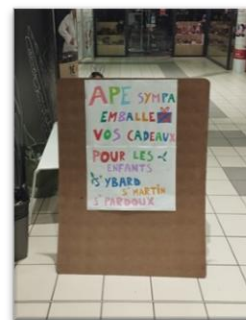 APE SYMPA
EMBALLE
VOS CADEAUX
POUR LES
ENFANTS
S' YBARD
S' MARTIN
S' PARDOUX